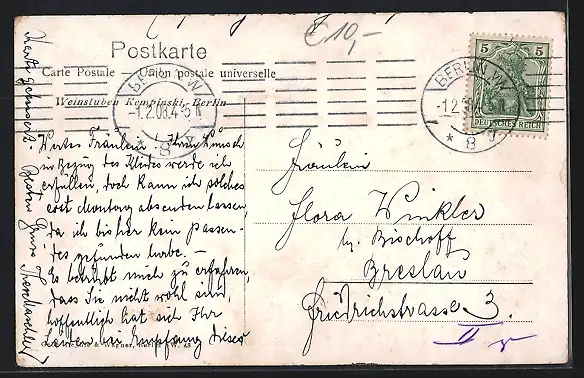 €10,-
Postkarte
Carte Postale — Union postale universelle
Weinstuben Kempinski, Berlin
BERLIN W
-1.2.08.4-5N
* 8 *
BERLIN W
-1.2.
* 8
5 5
DEUTSCHES REICH
Wertes Fräulein! Ihren Wunsch
in Bezug des Kleides werde ich
erfüllen, doch kann ich solches
erst Montag absenden lassen,
da ich bisher kein passen-
des gefunden habe. —
Es betrübt mich zu erfahren,
dass Sie nicht wohl sind,
hoffentlich hat sich Ihr
bei Empfang dieses
Besten Gruss
Fräulein
Flora Winkler
by. Bischoff
Breslau
Friedrichstrasse 3.
II